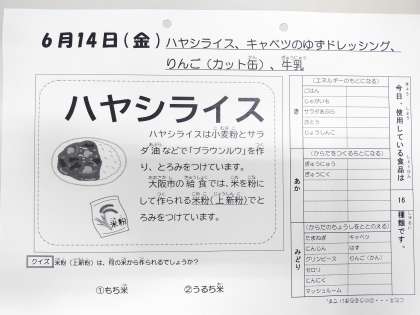 6月14日(金)
ハヤシライス、キャベツのゆずドレッシング、
りんご(カット缶)、牛乳
ハヤシライス
ハヤシライスは小麦粉とサラ
ダ油などで「ブラウンルウ」を作
り、とろみをつけています。
大阪市の給食では、米を粉に
して作られる米粉(上新粉)でと
ろみをつけています。
米粉
クイズ 米粉(上新粉)は、何の米から作られるでしょうか?
①もち米 ②うるち米
今日、使用している食品は
16
種類です。
(エネルギーのもとになる)
き
ごはん
じゃがいも
サラダあぶら
さとう
じょうしんこ
(からだをつくるもとになる)
あか
ぎゅうにゅう
ぎゅうにく
(からだのちょうしをととのえる)
みどり
たまねぎ キャベツ
にんじん ゆず
グリンピース りんご(かん)
セロリ
にんにく
マッシュルーム